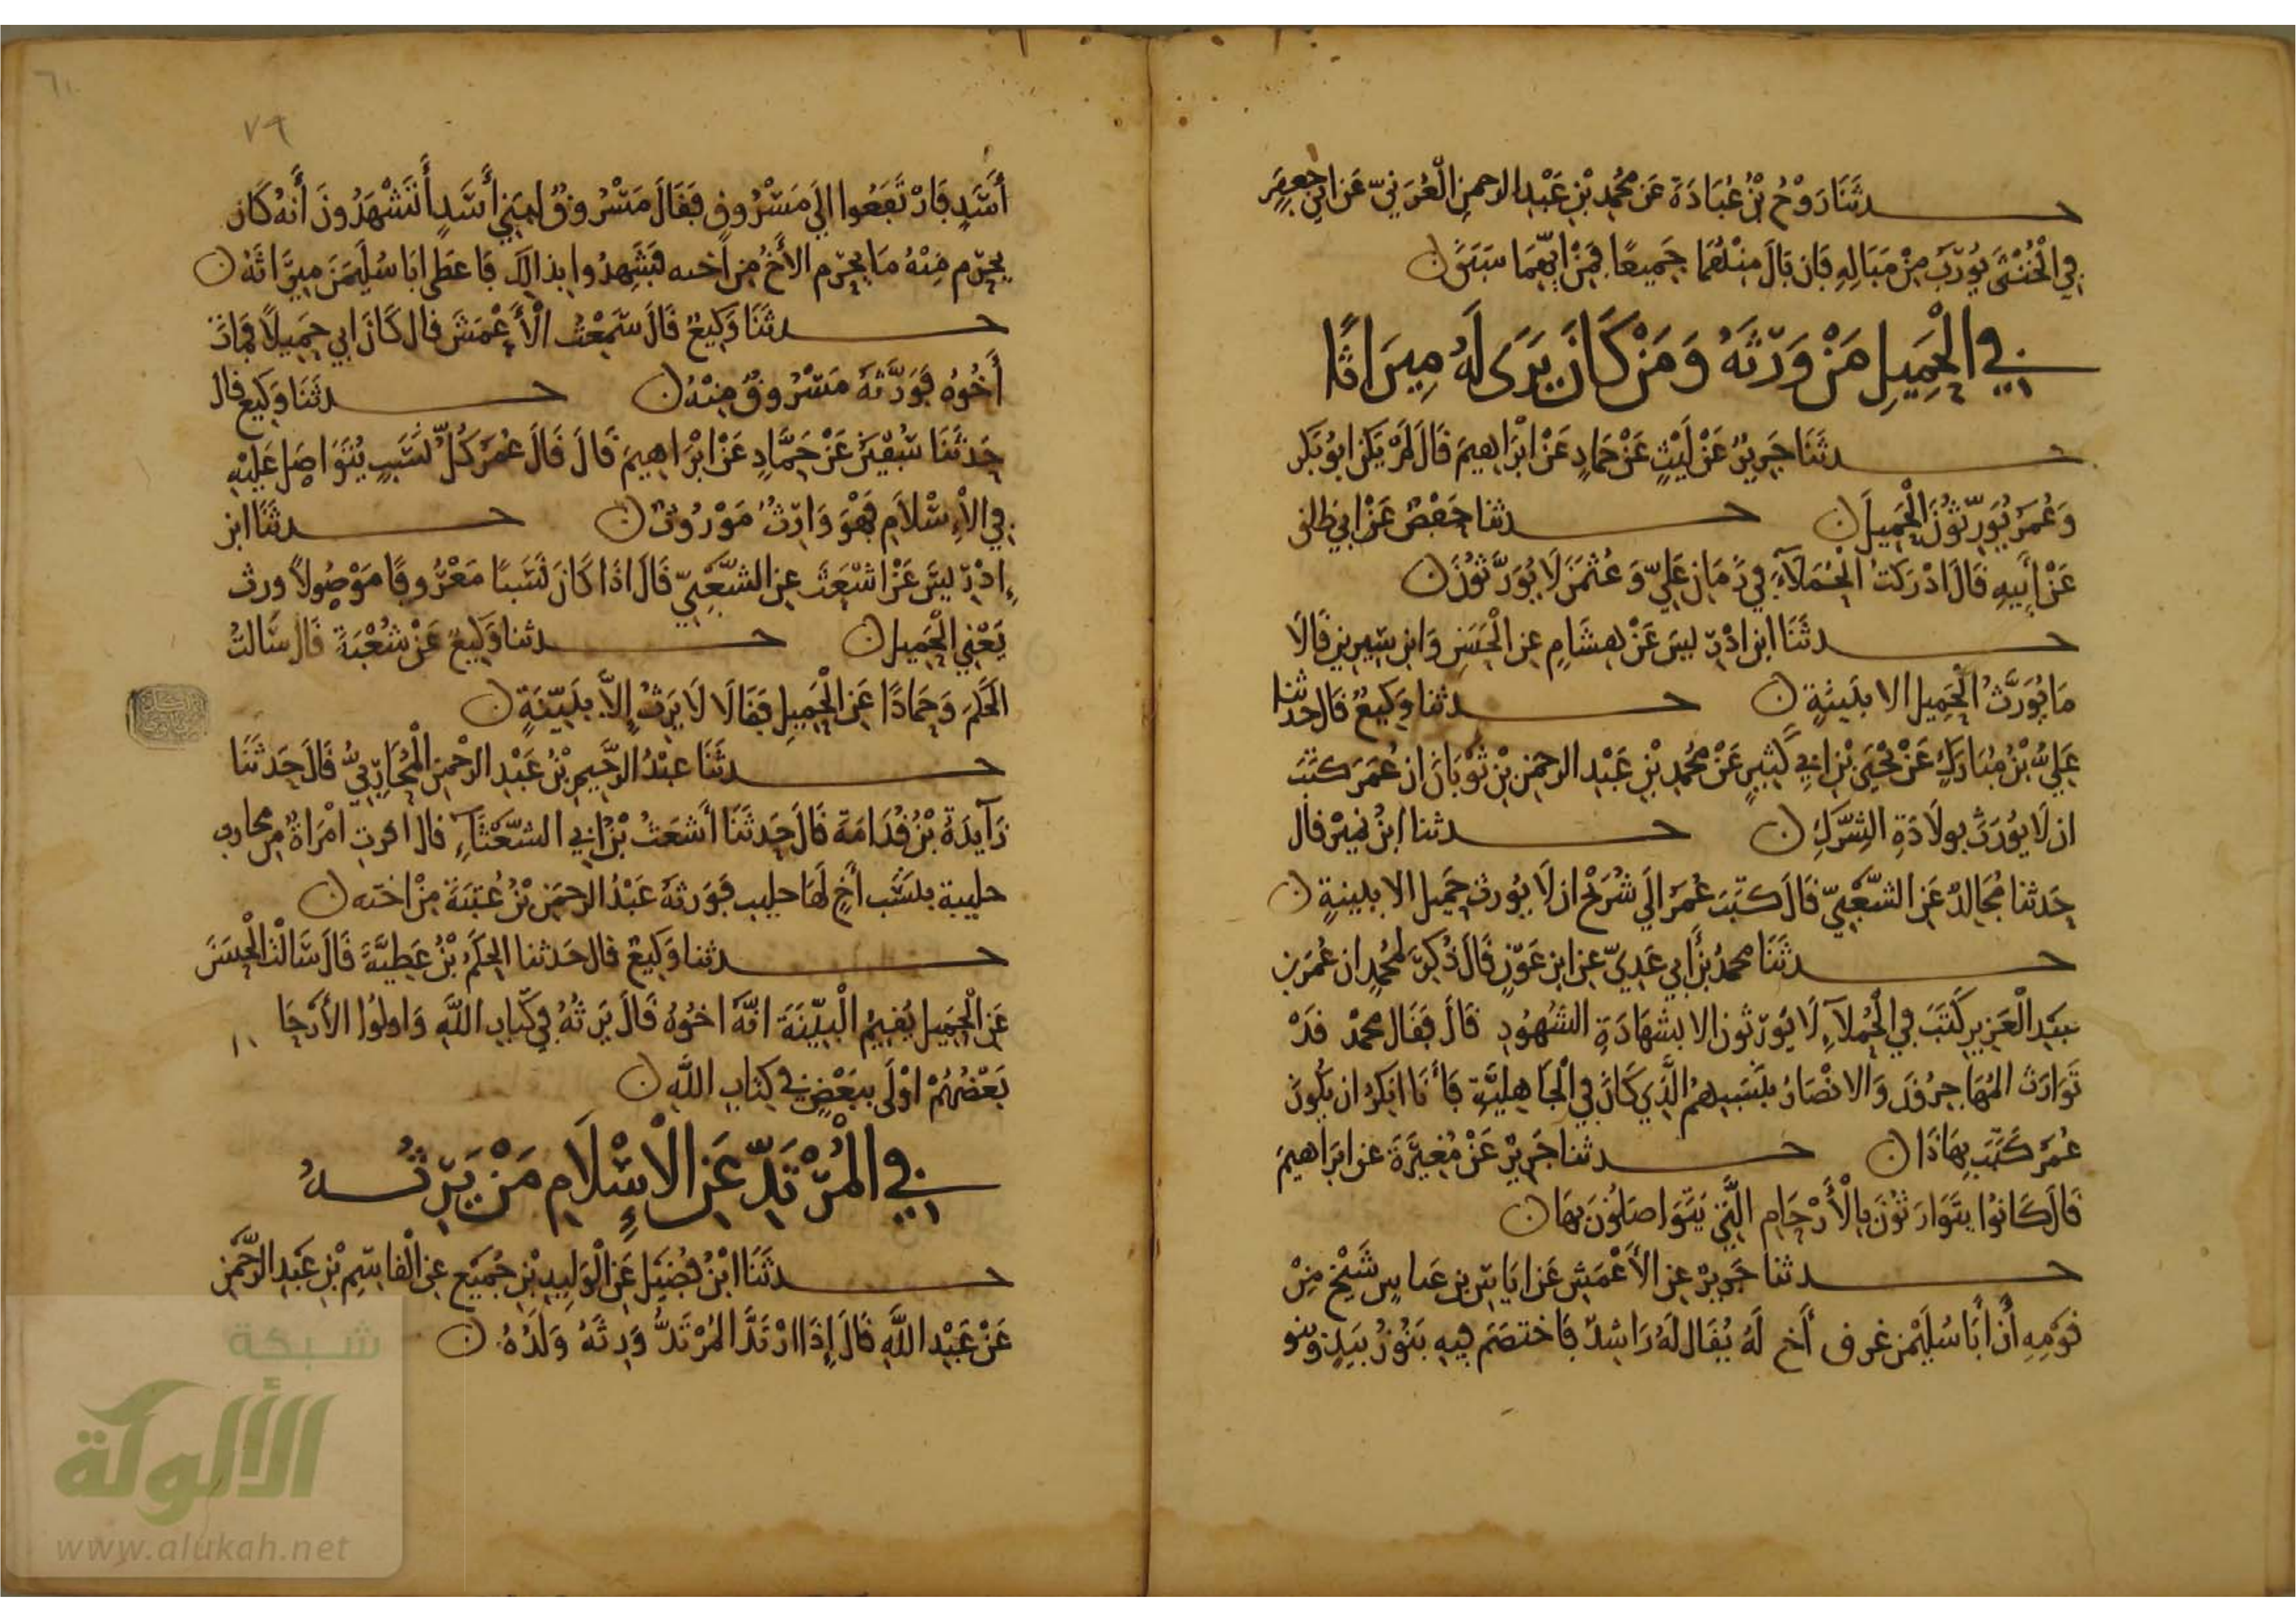 حدثنا روح بن عبادة عن محمد بن عبد الرحمن العرزمي عن ابي جعفر
في الخنثى يورث من مباله فان بال منهما جميعا فمن ايهما سبق ن
في الحميل من ورثه ومن كان يرى له ميراثا
حدثنا جرير عن ليث عن حماد عن ابراهيم قال لم يكن ابو بكر
وعمر يورثون الحميل ن حدثنا حفص عن ابي طلق
عن ابيه قال ادركت الحملاء في زمان علي وعثمن لا يورثون ن
حدثنا ابن ادريس عن هشام عن الحسن وابن سيرين قالا
ما يورث الحميل الا ببينة ن حدثنا وكيع قال حدثنا
علي بن مبارك عن يحيى بن ابي كثير عن محمد بن عبد الرحمن بن ثوبان ان عمر كتب
ان لا يورث بولادة الشرك ن حدثنا ابن نمير قال
حدثنا مجالد عن الشعبي قال كتب عمر الى شريح ان لا يورث حميل الا ببينة ن
حدثنا محمد بن أبي عدي عن ابن عون قال ذكر لمحمد ان عمر بن
عبد العزيز كتب في الحملاء لا يورثون الا بشهادة الشهود قال فقال محمد قد
توارث المهاجرون والانصار بنسبهم الذي كان في الجاهلية فأنا انكر ان يكون
عمر كتب بهاذا ن حدثنا جرير عن مغيرة عن ابراهيم
قال كانوا يتوارثون بالأرحام التي يتواصلون بها ن
حدثنا جرير عن الأعمش عن اياس بن عباس شيخ من
قومه أن أبا سليمن عرف أخ له يقال له راشد فاختصم فيه بنو زبيد وبنو
٧٩
أسد فارتفعوا الى مسروق فقال مسروق لبني أسد أتشهدون أنه كان
يحرم منه ما يحرم الأخ من أخته فشهدوا بذالك فاعطى ابا سليمن ميراثه ن
حدثنا وكيع قال سمعت الأعمش قال كان ابي حميلا فمات
أخوه فورثه مسروق منه ن حدثنا وكيع قال
حدثنا سفين عن حماد عن ابراهيم قال قال عمر كل نسب يتواصل عليه
في الإسلام فهو وارث موروث ن حدثنا ابن
إدريس عن اشعث عن الشعبي قال اذا كان نسبا معروفا موصولا ورث
يعني الحميل ن حدثنا وكيع عن شعبة قال سالت
الحكم وحمادا عن الحميل فقالا لا يرث إلا ببينة ن
حدثنا عبد الرحيم بن عبد الرحمن المحاربي قال حدثنا
زآيدة بن قدامة قال حدثنا أشعث بن ابي الشعثآء قال اقرت امراة من محارب
جليبة بنسب أخ لها جليب فورثه عبد الرحمن بن عتبة من اخته ن
حدثنا وكيع قال حدثنا الحكم بن عطية قال سالت الحسن
عن الحميل يقيم البينة انه اخوه قال يرثه في كتاب الله واولوا الأرحا م
بعضهم اولى ببعض في كتاب الله ن
في المرتد عن الإسلام من يرثه
حدثنا ابن فضيل عن الوليد بن جميع عن القاسم بن عبد الرحمن
عن عبد الله قال إذا ارتد المرتد ورثه ولده ن
شبكة
الألوكة
www.alukah.net